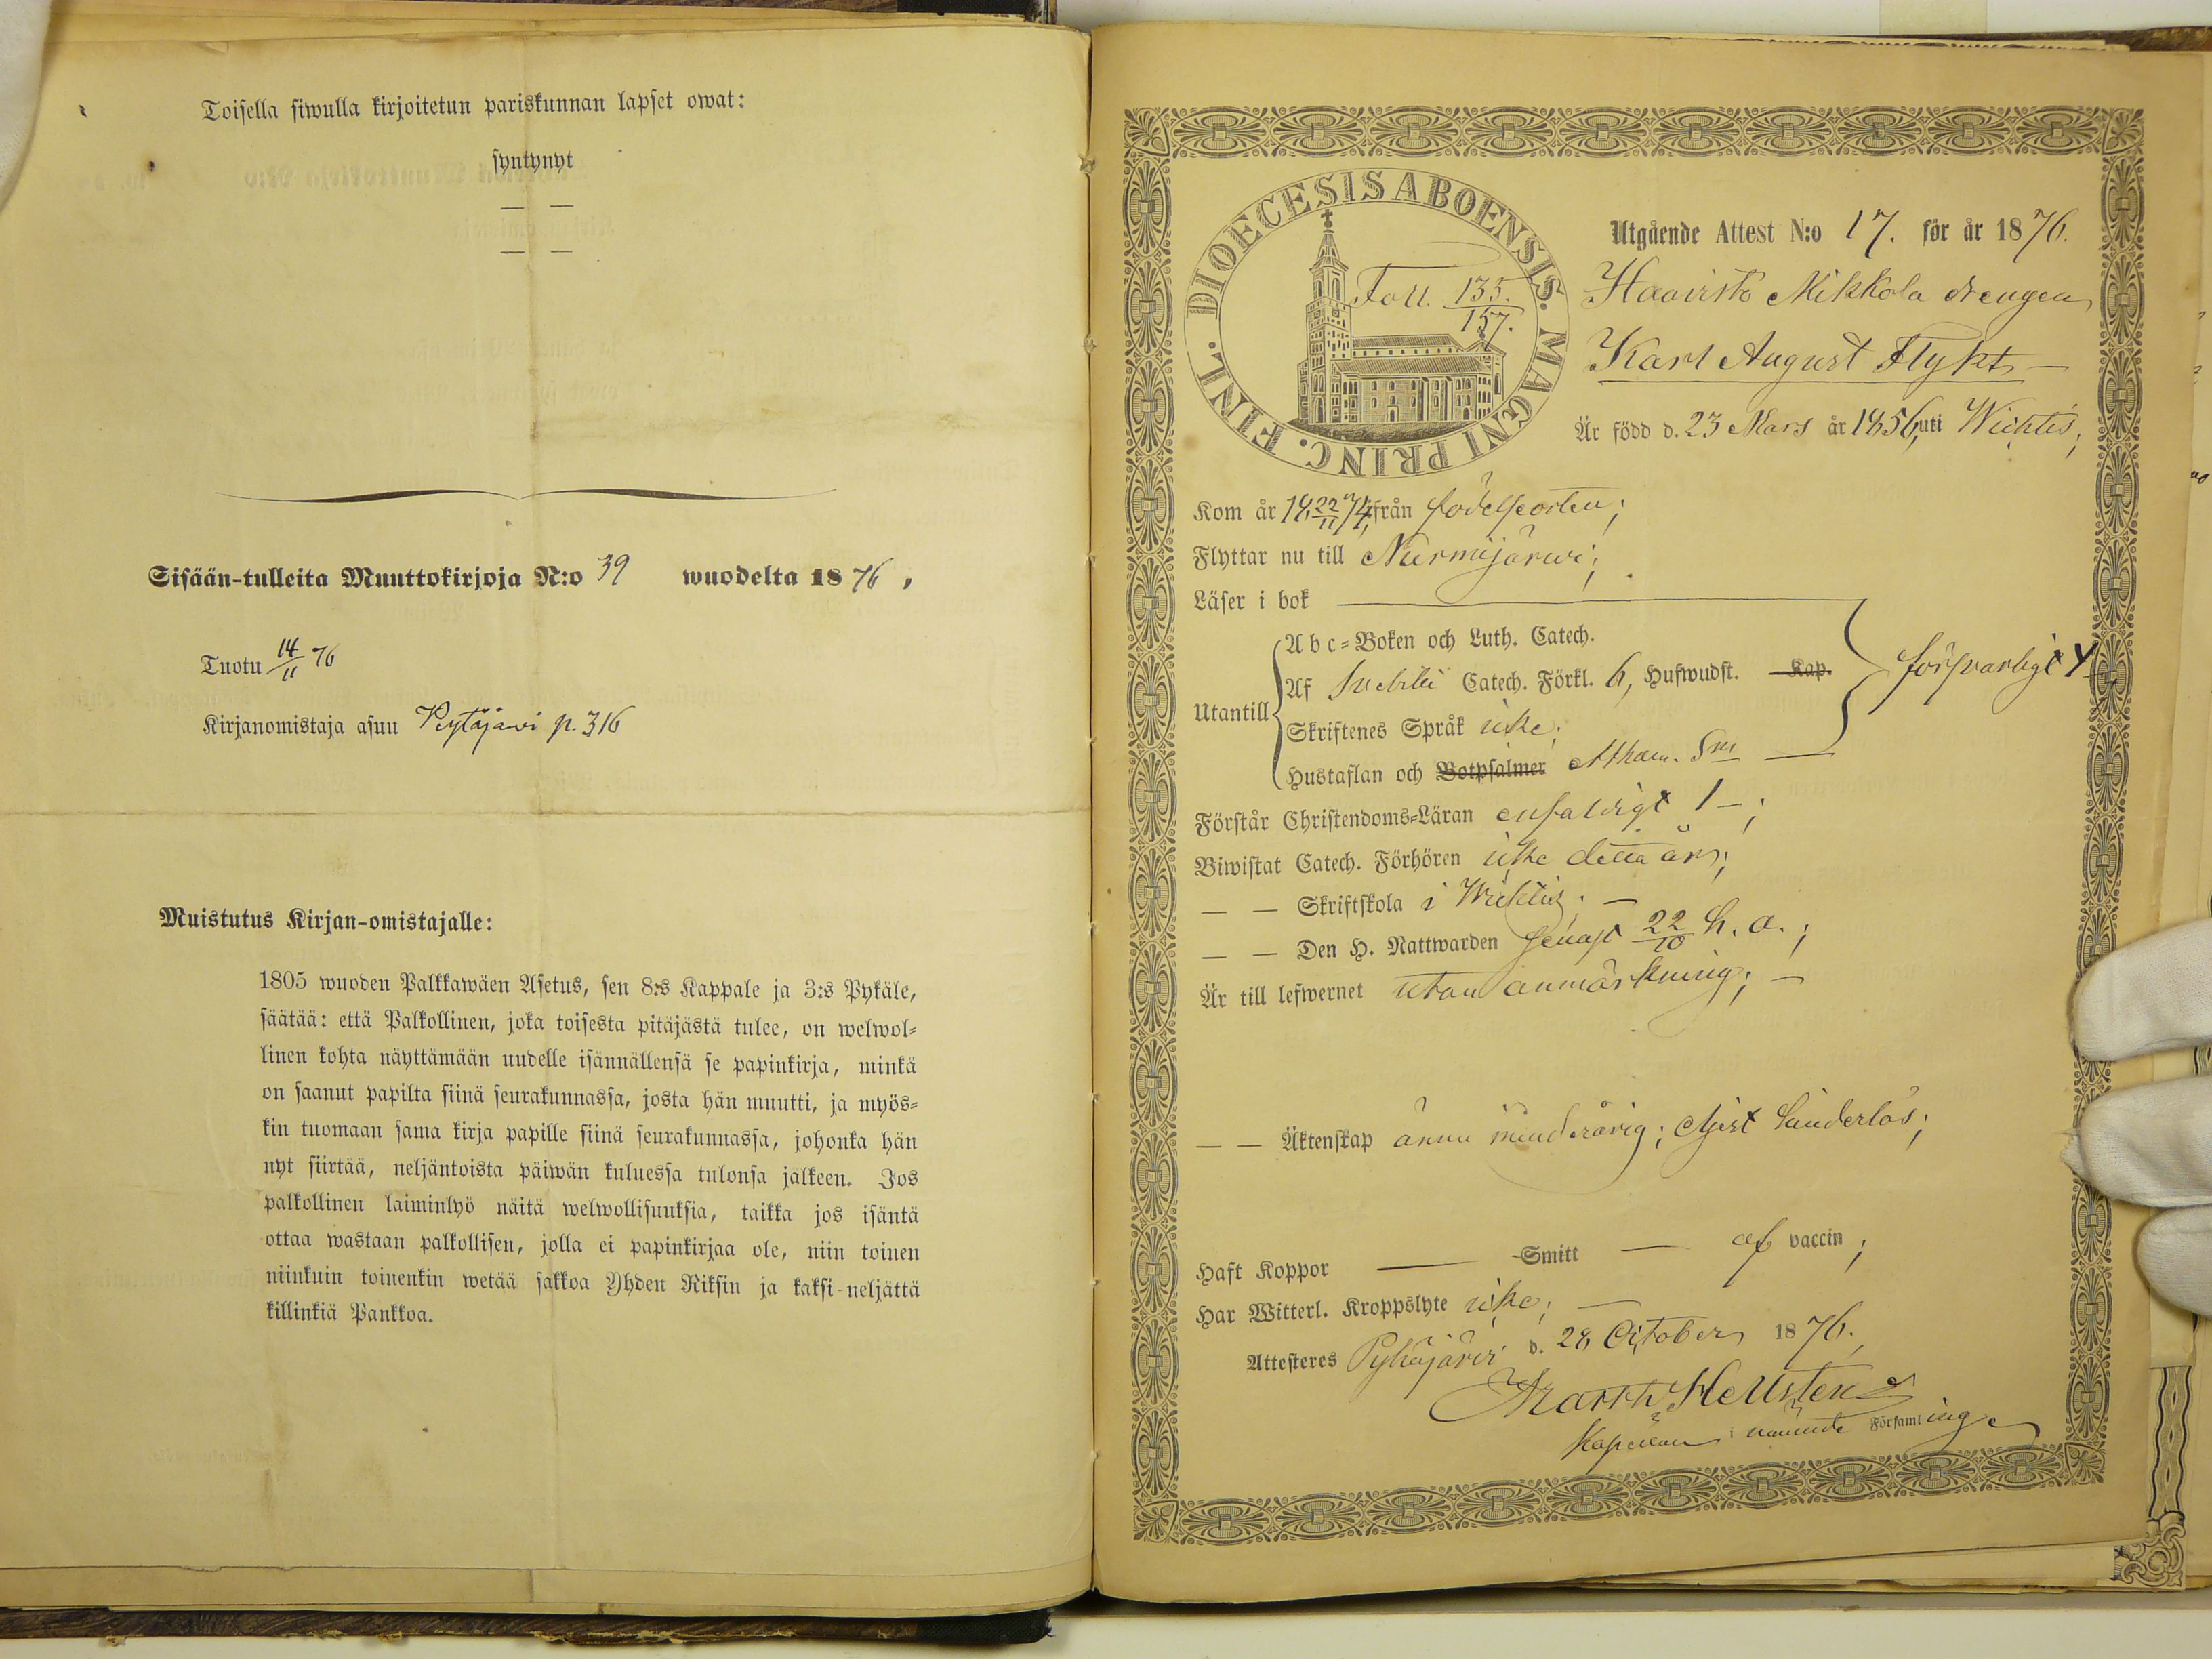 Toisella siwulla kirjoitetun pariskunnan lapset owat:
syntynyt
— —
— —
Sisään-tulleita Muuttokirjoja N:o 39 wuodelta 1876,
Tuotu 14/11 76
Kirjanomistaja asuu p. 316
Muistutus Kirjan-omistajalle:
1805 wuoden Palkkawäen Asetus, sen 8:s Kappale ja 3:s Pykäle,
säätää: että Palkollinen, joka toisesta pitäjästä tulee, on welwol-
linen kohta näyttämään uudelle isännällensä se papinkirja, minkä
on saanut papilta siinä seurakunnassa, josta hän muutti, ja myös-
kin tuomaan sama kirja papille siinä seurakunnassa, johonka hän
nyt siirtää, neljäntoista päiwän kuluessa tulonsa jälkeen. Jos
palkollinen laiminlyö näitä welwollisuuksia, taikka jos isäntä
ottaa wastaan palkollisen, jolla ei papinkirjaa ole, niin toinen
niinkuin toinenkin wetää sakkoa Yhden Riksin ja kaksi-neljättä
killinkiä Pankkoa.
DIOECESIS ABOENSIS. MAGNI PRINC. FINL.
Foll. 135./157.
Utgående Attest N:o 17. för år 1876.
Haavisto Mikkola drengen
Karl August Flykt —
Är född d. 23 Mars år 1856, uti Wichtis;
Kom år 18 22/11 74 ifrån födelseorten;
Flyttar nu till Nurmijärwi;
Läser i bok
Abc-Boken och Luth. Catech.
Utantill
Af Svebilii Catech. Förkl. 6, Hufwudst. Kap.
försvarligt
Skriftenes Språk icke;
Hustaflan och Botpsalmer Athan. Sm
Förstår Christendoms-Läran enfaldigt 1 —;
Biwistat Catech. Förhören icke detta år;
— — Skriftskola i Wichtis; —
— — Den H. Nattwarden senast 22/10 h. a.;
Är till lefwernet utan anmärkning; —
— — Äktenskap ännu minderårig; hinderlös;
Haft Koppor — Smitt — af vaccin;
Har Witterl. Kroppslyte icke; —
Attesteres Pyhäjärvi d. 28 October 1876.
Martin Hellsten
Kapellan i nämnde Församlinge